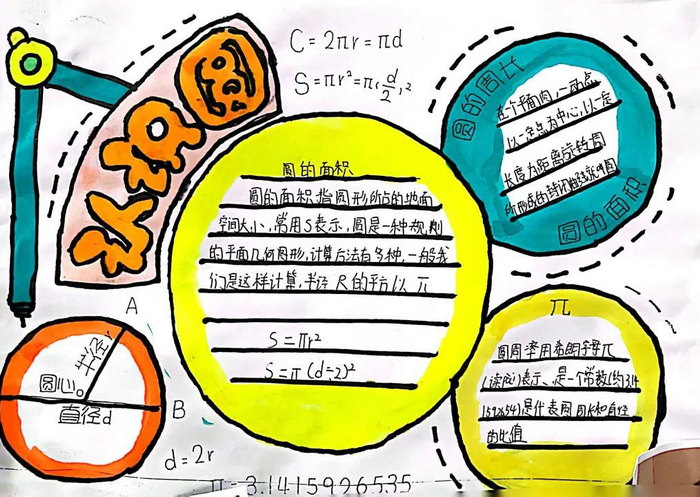 认知圆
C=2πr=πd
S=πr²=π(d/2)²
圆的周长
在个平面内,一动点
以一定点为中心,以一定
长度为距离旋转一周
所形成的封闭曲线就叫圆
圆的面积
圆的面积
圆的面积指圆形所占的地面
空间大小,常用S表示,圆是一种规则
的平面几何图形,计算方法有多种,一般我
们是这样计算,半径 R的平方以 π
S=πr²
S=π(d÷2)²
A
半径r
圆心o
直径d
B
d=2r
π
圆周率用希腊字母π
(读pài)表示,是一个常数(约3.14
1592654)是代表圆周长和直径
的比值
π=3.1415926535